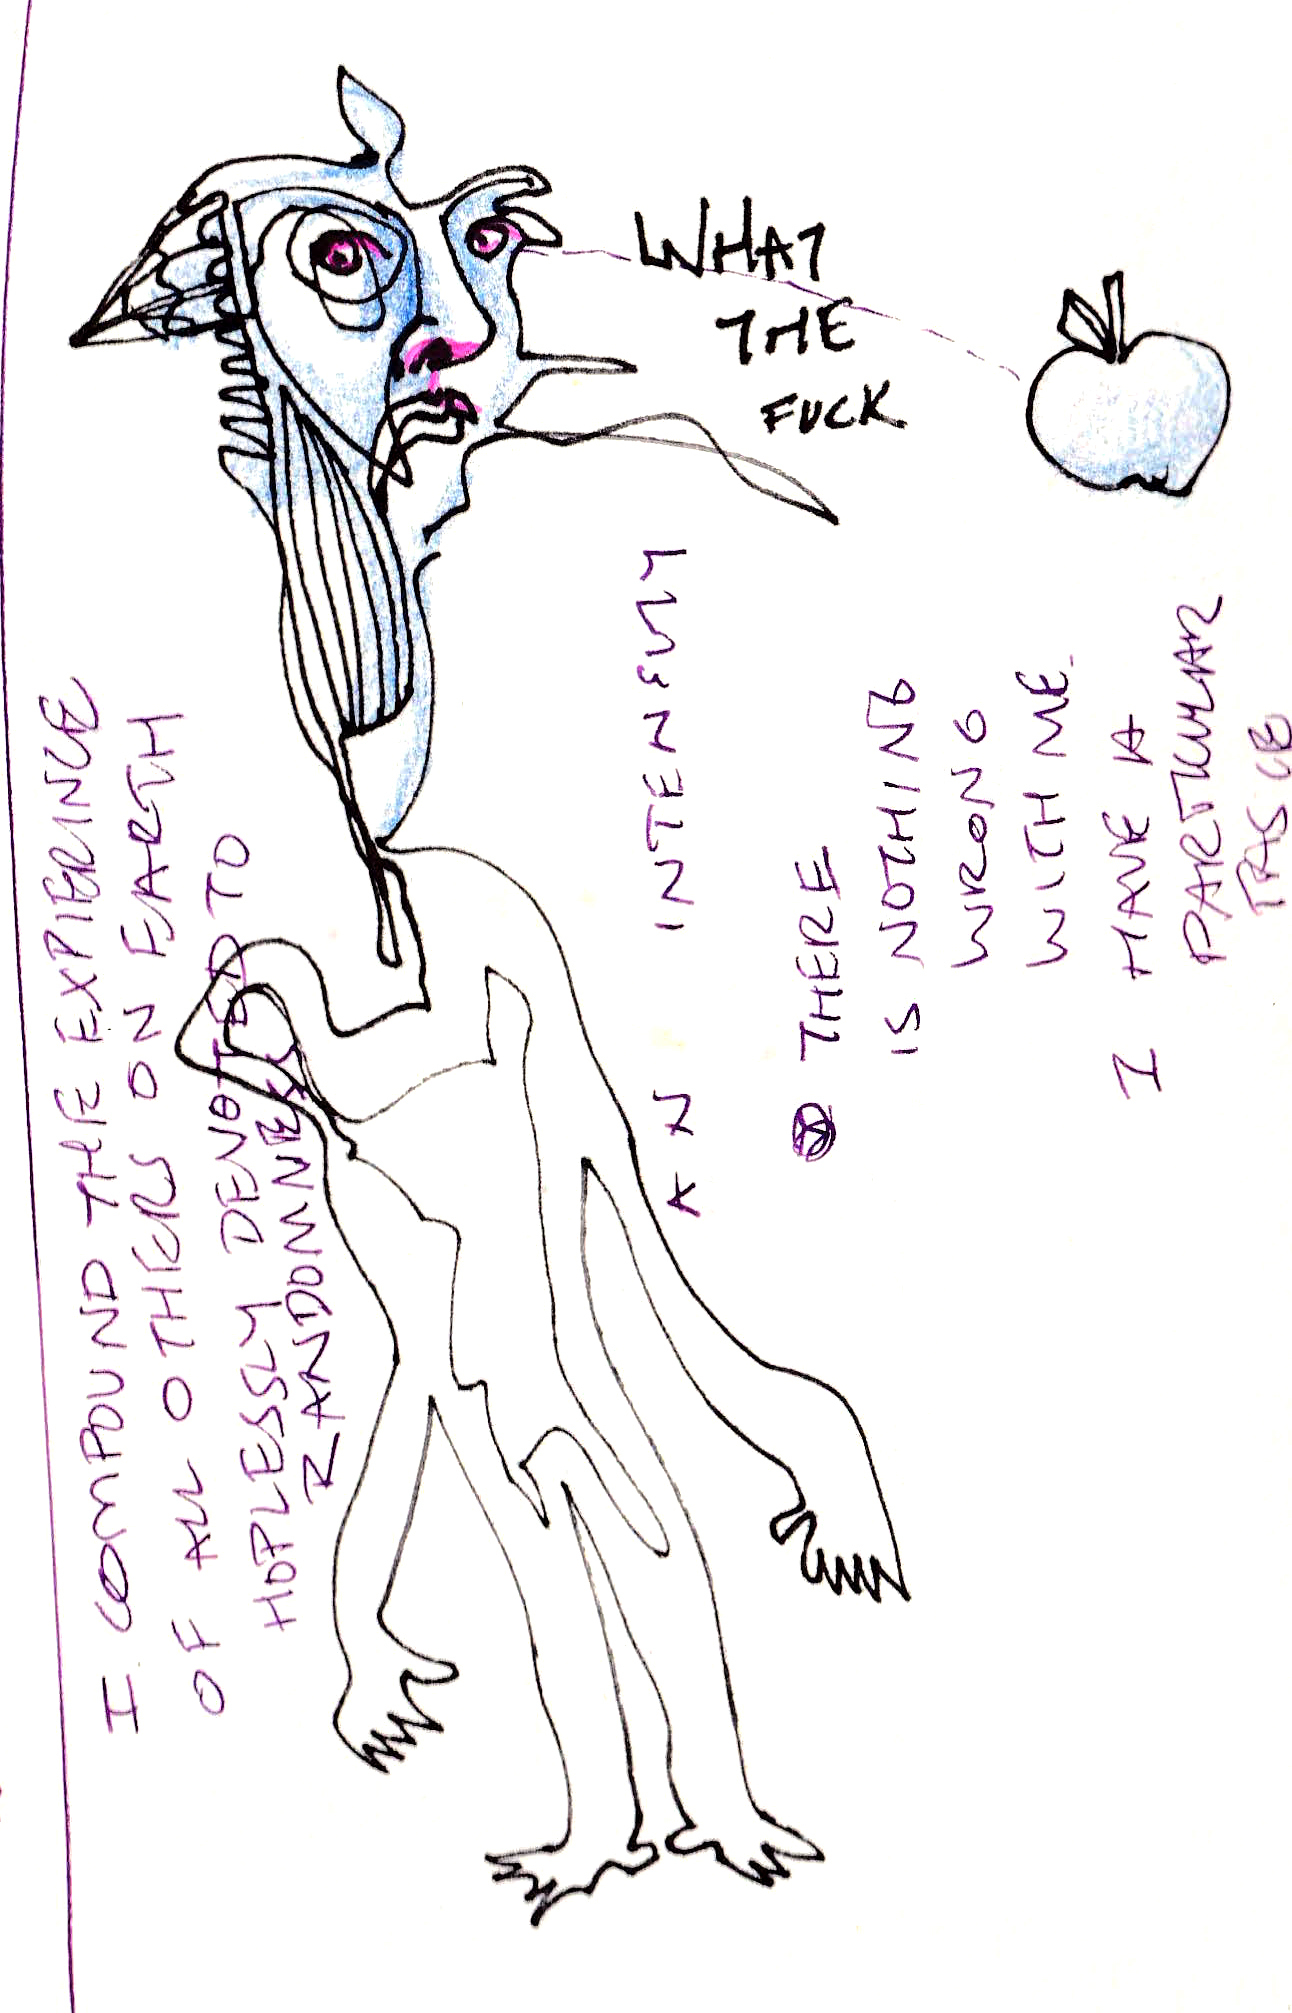 WHAT
THE
FUCK
I COMPOUND THE EXPIERINCE
OF ALL OTHERS ON EARTH
HOPLESSLY DEVOTED TO
RANDOMNESS
AN INTENSITY
THERE
IS NOTHING
WRONG
WITH ME.
I HAVE A
PARTICULAR